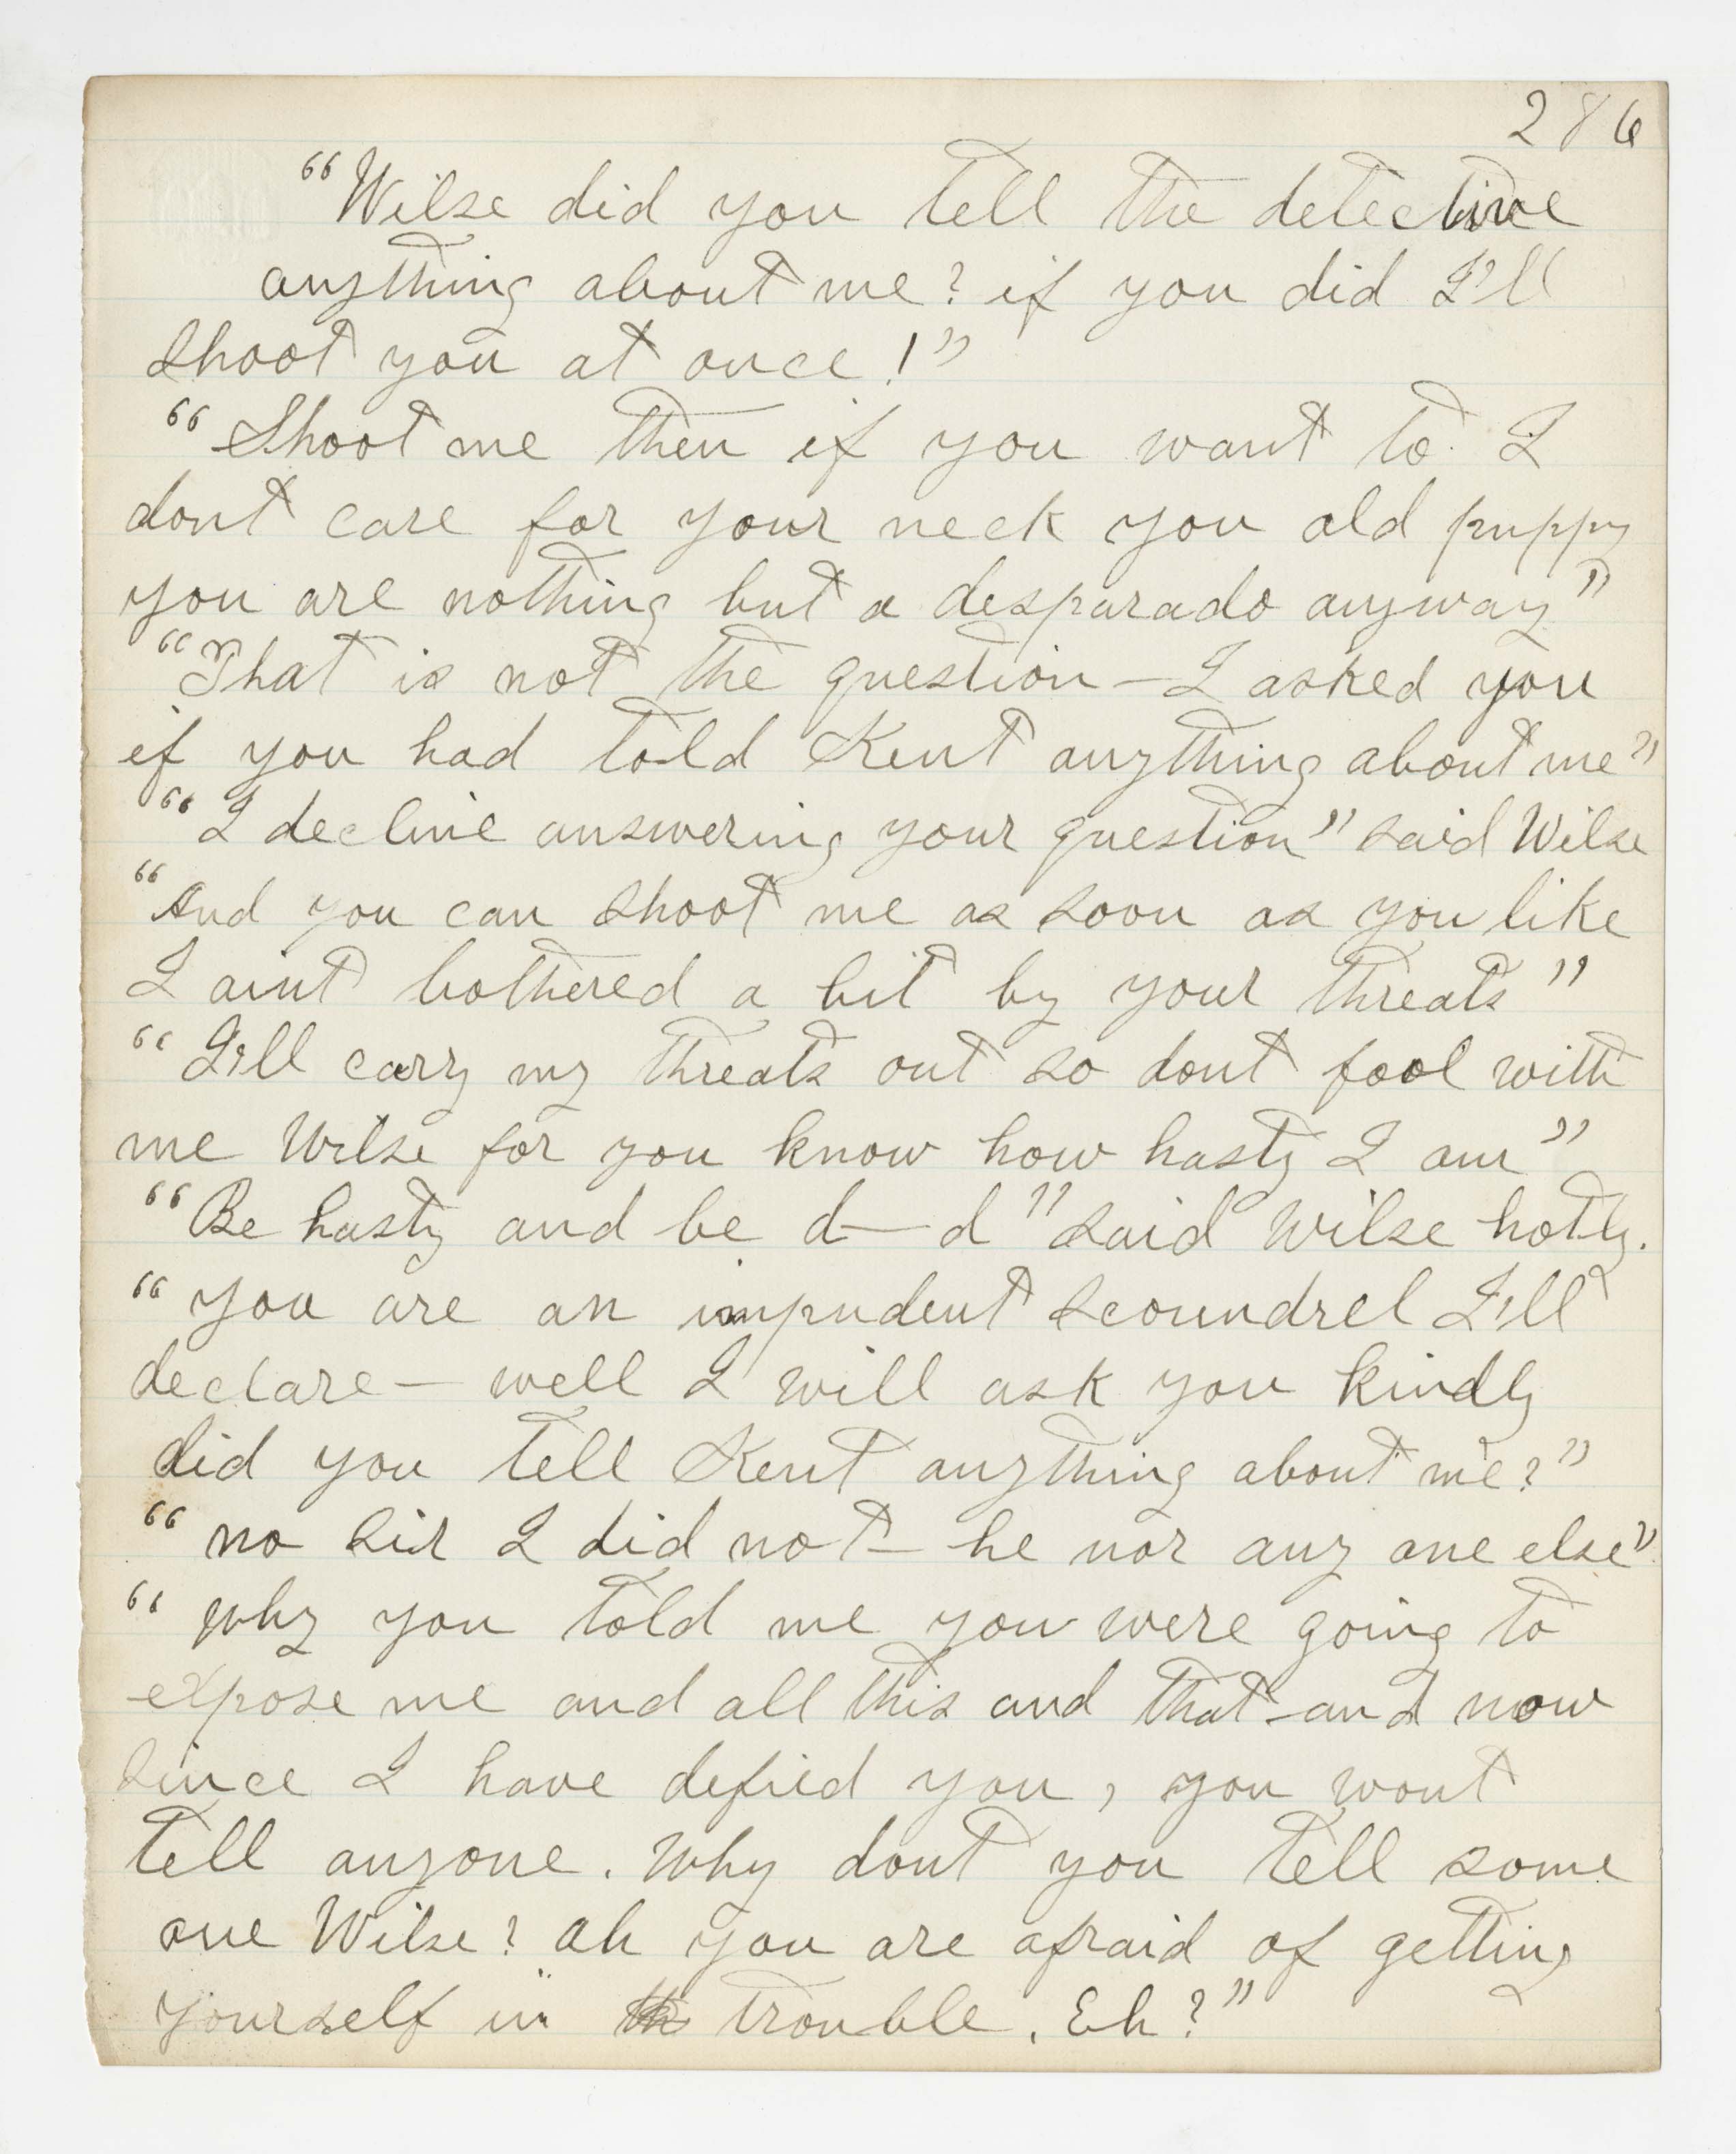 286
"Wilse did you tell the detective
anything about me? if you did I'll
shoot you at once!"
"Shoot me then if you want to. I
dont care for your neck you old puppy
you are nothing but a desparado anyway"
"That is not the question — I asked you
if you had told Kent anything about me"
"I decline answering your question" said Wilse
"And you can shoot me as soon as you like
I aint bothered a bit by your threats"
"I'll carry my threats out so dont fool with
me Wilse for you know how hasty I am"
"Be hasty and be d—d" said Wilse hotly.
"you are an impudent scoundrel I'll
declare — well I will ask you kindly
did you tell Kent anything about me?"
"no sir I did not — he nor any one else"
"why you told me you were going to
expose me and all this and that - and now
since I have defied you, you wont
tell anyone. Why dont you tell some
one Wilse? ah you are afraid of getting
yourself in trouble. Eh?"